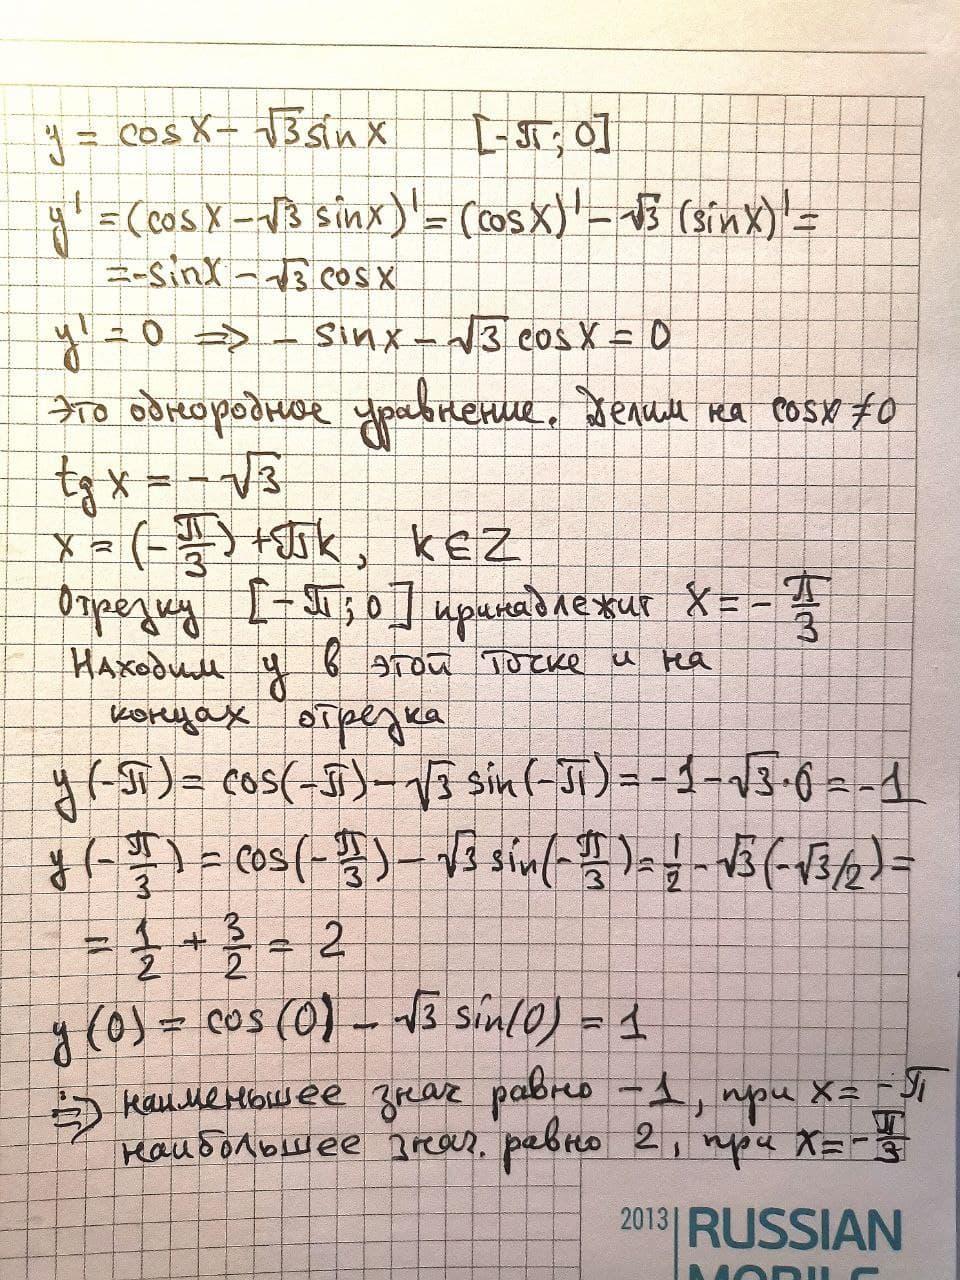 y = cosx - √3 sinx [-π; 0]
y' = (cosx - √3 sinx)' = (cosx)' - √3 (sinx)' =
= -sinx - √3 cosx
y' = 0 ⇒ - sinx - √3 cosx = 0
Это однородное уравнение. Делим на cosx ≠ 0
tg x = - √3
x = (-π/3) + πk, k ∈ Z
Отрезку [-π; 0] принадлежит x = - π/3
Находим y в этой точке и на
концах отрезка
y(-π) = cos(-π) - √3 sin(-π) = -1 - √3·0 = -1
y(-π/3) = cos(-π/3) - √3 sin(-π/3) = 1/2 - √3(-√3/2) =
= 1/2 + 3/2 = 2
y(0) = cos(0) - √3 sin(0) = 1
⇒ наименьшее знач равно -1, при x = -π
наибольшее знач. равно 2, при x = -π/3
2013 | RUSSIAN
MOBILE